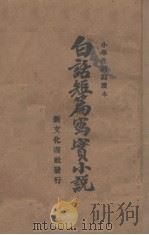 小學生課外讀本
白話短篇寫實小說
新文化書社發行